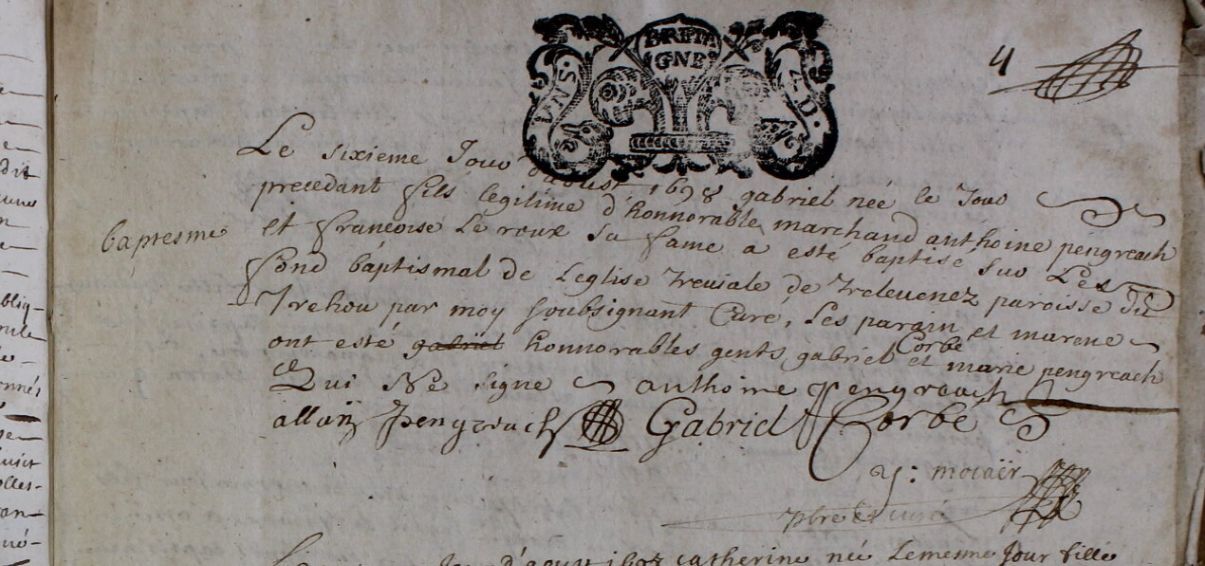 BRETA
GNE
VNS.
4.D.
4
Le sixieme Jour d'aoust 1698 gabriel née le Jour
precedant fils legitime d'honnorable marchand anthoine pengreach
baptesme
et francoise Le roux sa fame a esté baptisé sur Les
fond baptismal de Leglise treuiale de treleuenez paroisse du
trehou par moy soubsignant Curé, Les parain et marene
ont esté gabriel honnorables gents gabriel Corbé et marie pengreach
Qui Ne signe anthoine pengreach
allain pengreach Gabriel Corbé
y: mocaër
pbre et curé
d'aoust 1698 catherine née Lemesme Jour fille